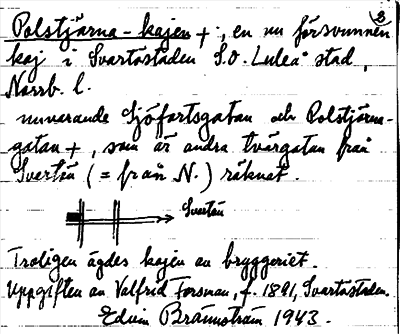 2
Polstjärna-kajen +, en nu försvunnen
kaj i Svartöstaden S.O. Luleå stad,
Norrb. l.
nuvarande Sjöfartsgatan och Polstjärne-
gatan +, som är andra tvärgatan från
Svartön (= från N.) räknat.
Svartön
Troligen ägdes kajen av bryggeriet.
Uppgiften av Valfrid Forsman, f. 1891, Svartöstaden.
Edvin Brännström 1943.